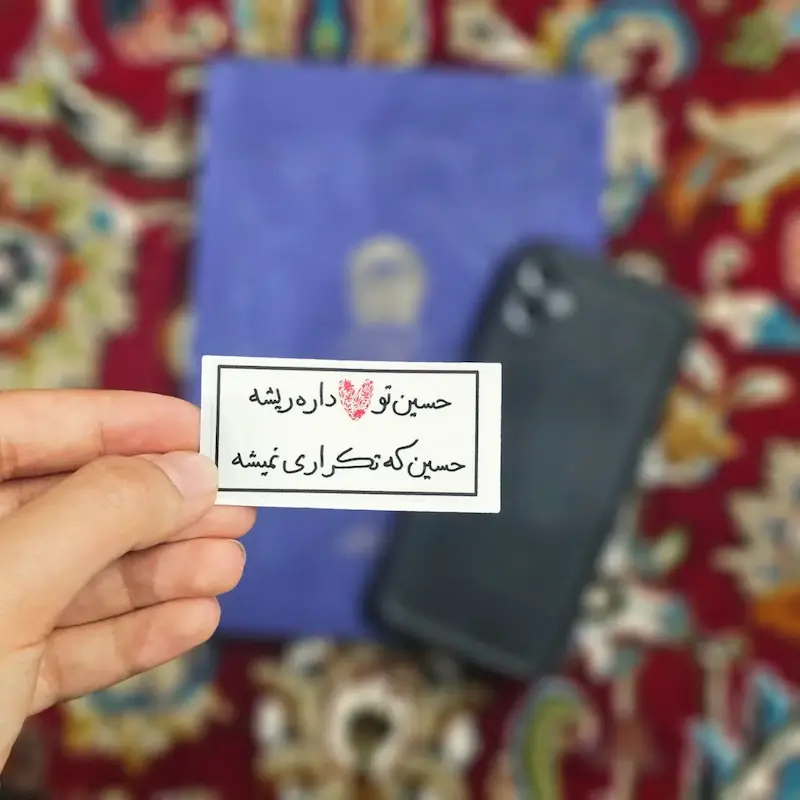 حسین تو ❤ داره ریشه
حسین که تکراری نمیشه